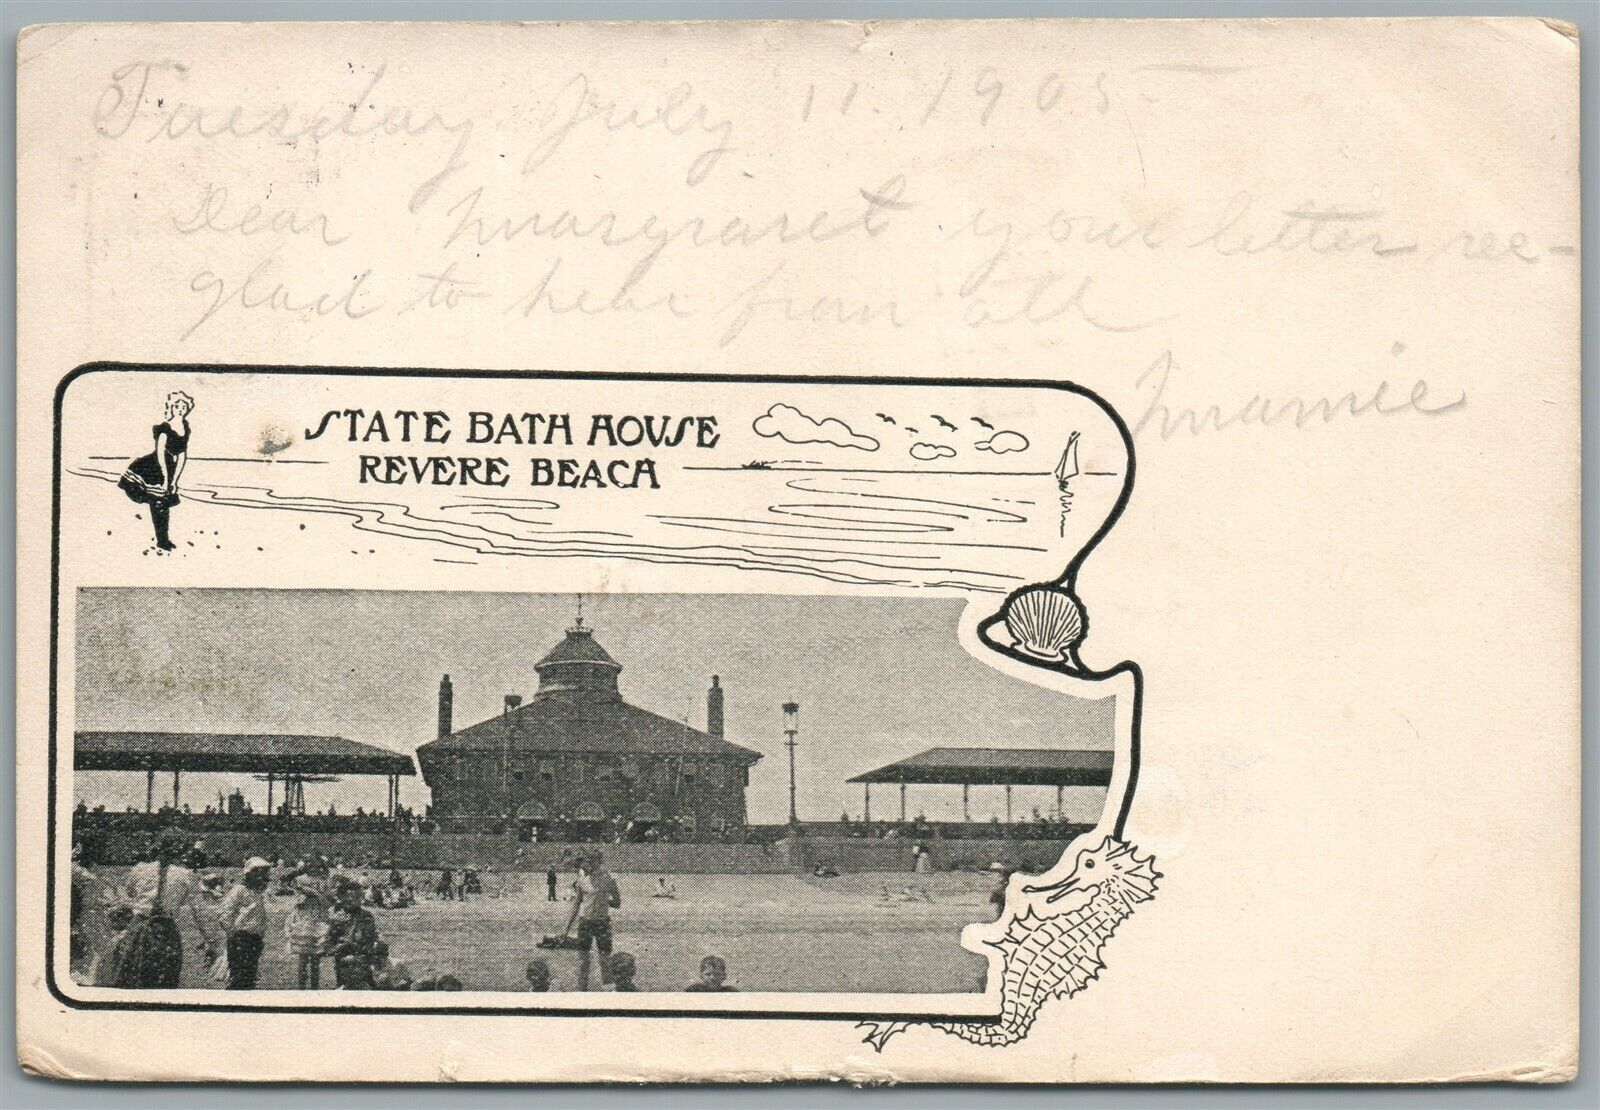 Tuesday July 11. 1905
Dear Margraret your letter rec-
glad to hear from all
Mamie
STATE BATH HOUSE
REVERE BEACH